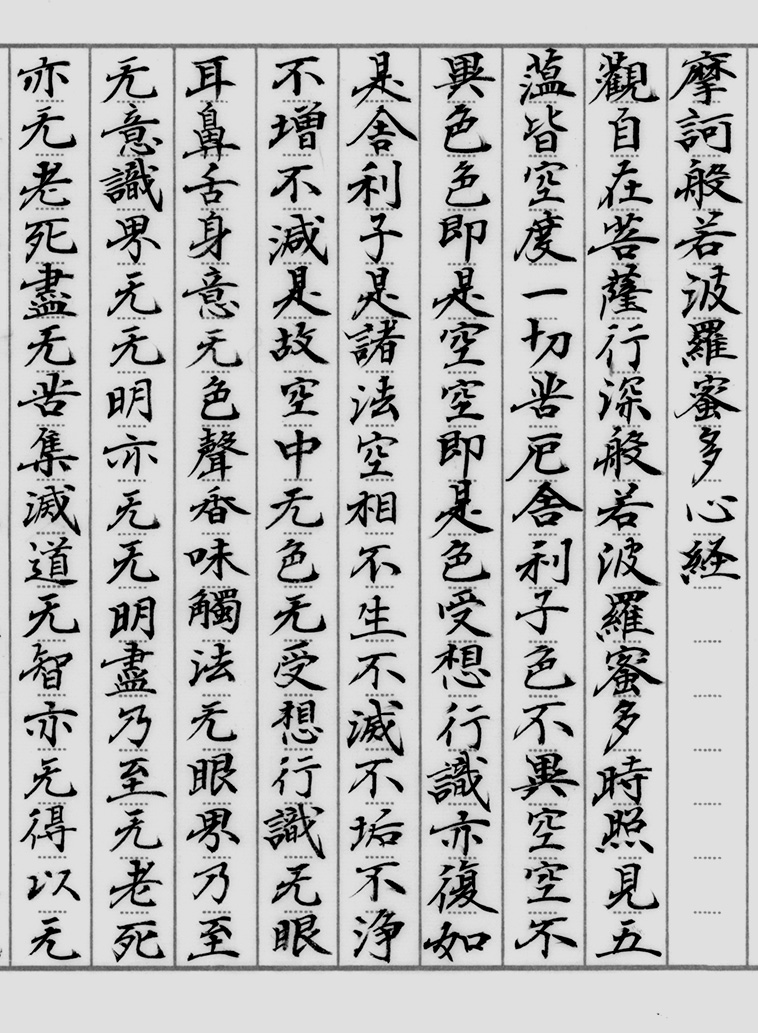 摩訶般若波羅蜜多心経
觀自在菩薩行深般若波羅蜜多時照見五
薀皆空度一切苦厄舍利子色不異空空不
異色色即是空空即是色受想行識亦復如
是舍利子是諸法空相不生不滅不垢不浄
不增不減是故空中无色无受想行識无眼
耳鼻舌身意无色聲香味觸法无眼界乃至
无意識界无无明亦无无明盡乃至无老死
亦无老死盡无苦集滅道无智亦无得以无